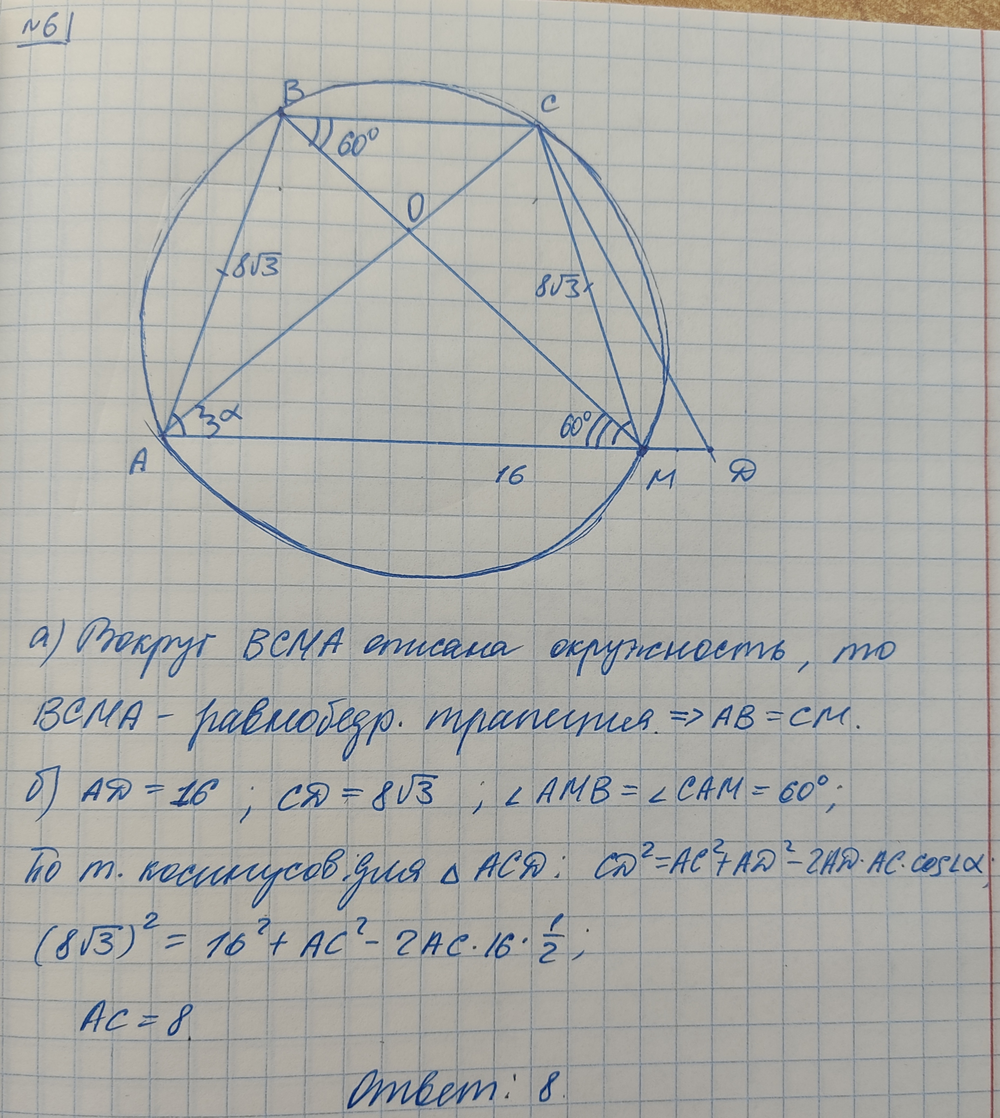 №6
B
C
60°
O
8√3
8√3
α
60°
A
16
M
D
а) Вокруг BCMA описана окружность, то
BCMA - равнобедр. трапеция. => AB = CM.
б) AD = 16 ; CD = 8√3 ; ∠AMB = ∠CAM = 60°;
По т. косинусов для △ ACD: CD² = AC² + AD² - 2AD·AC·cos∠α;
(8√3)² = 16² + AC² - 2AC·16·1/2;
AC = 8.
Ответ: 8.